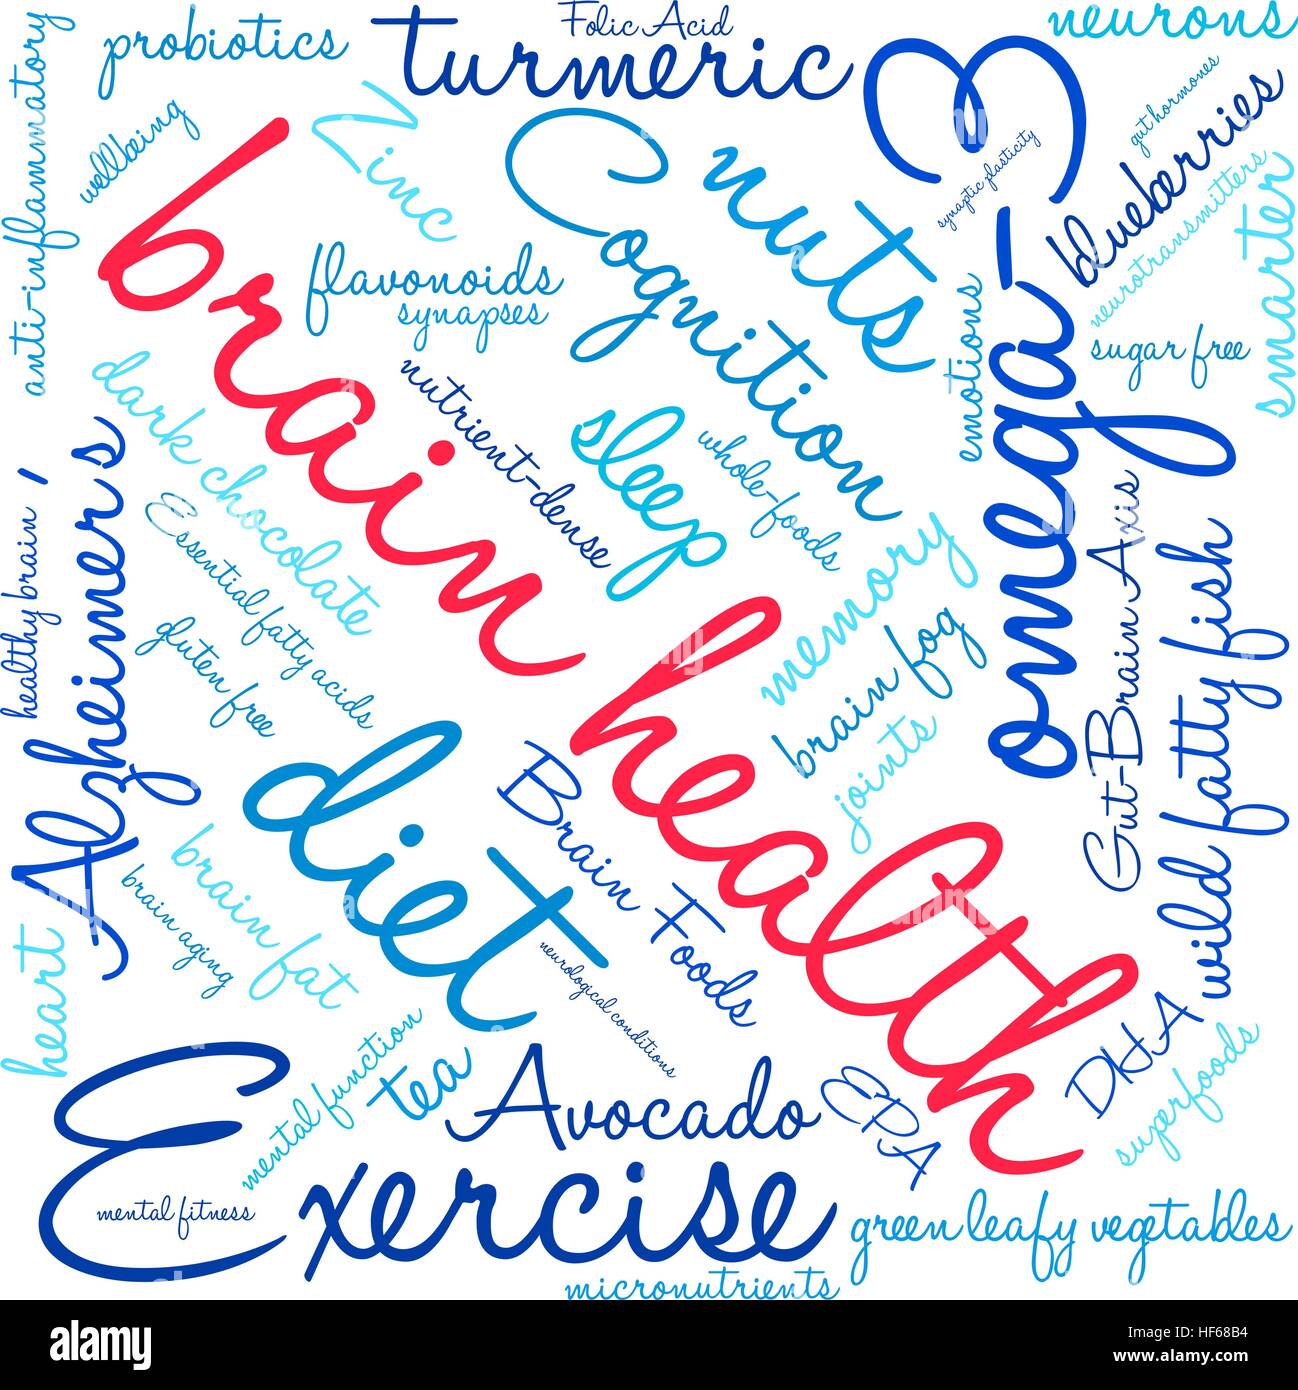 Folic Acid
neurons
probiotics
turmeric
anti-inflammatory
wellbeing
Zinc
Cognition
nuts
omega-3
synaptic plasticity
gut hormones
blueberries
neurotransmitters
smarter
flavonoids
synapses
sugar free
emotions
brain health
dark chocolate
nutrient-dense
sleep
whole-foods
Alzheimer's
healthy brain
Essential fatty acids
gluten free
memory
brain fog
joints
Gut-Brain Axis
wild fatty fish
diet
Brain Foods
brain fat
brain aging
neurological conditions
heart
mental function
tea
Avocado
EPA
DHA
superfoods
Exercise
mental fitness
green leafy vegetables
micronutrients
alamy
alamy
Image ID: HF68B4
www.alamy.com